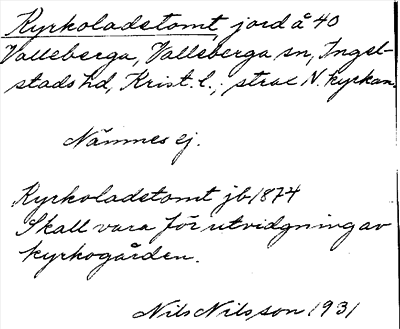 Kyrkoladetomt, jord å 40
Valleberga, Valleberga sn, Ingel-
stads hd, Krist. l.; strax N. kyrkan.
Nämnes ej.
Kyrkoladetomt jb 1874
Skall vara för utvidgning av
kyrkogården.
Nils Nilsson 1931